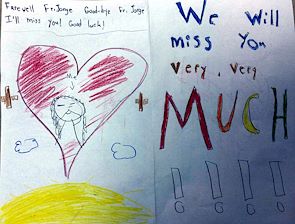 Farewell Fr. Jorge Good-bye Fr. Jorge
I'll miss you! Good luck!
Me
We Will
miss You
very, very
MUCH
! ! ! !